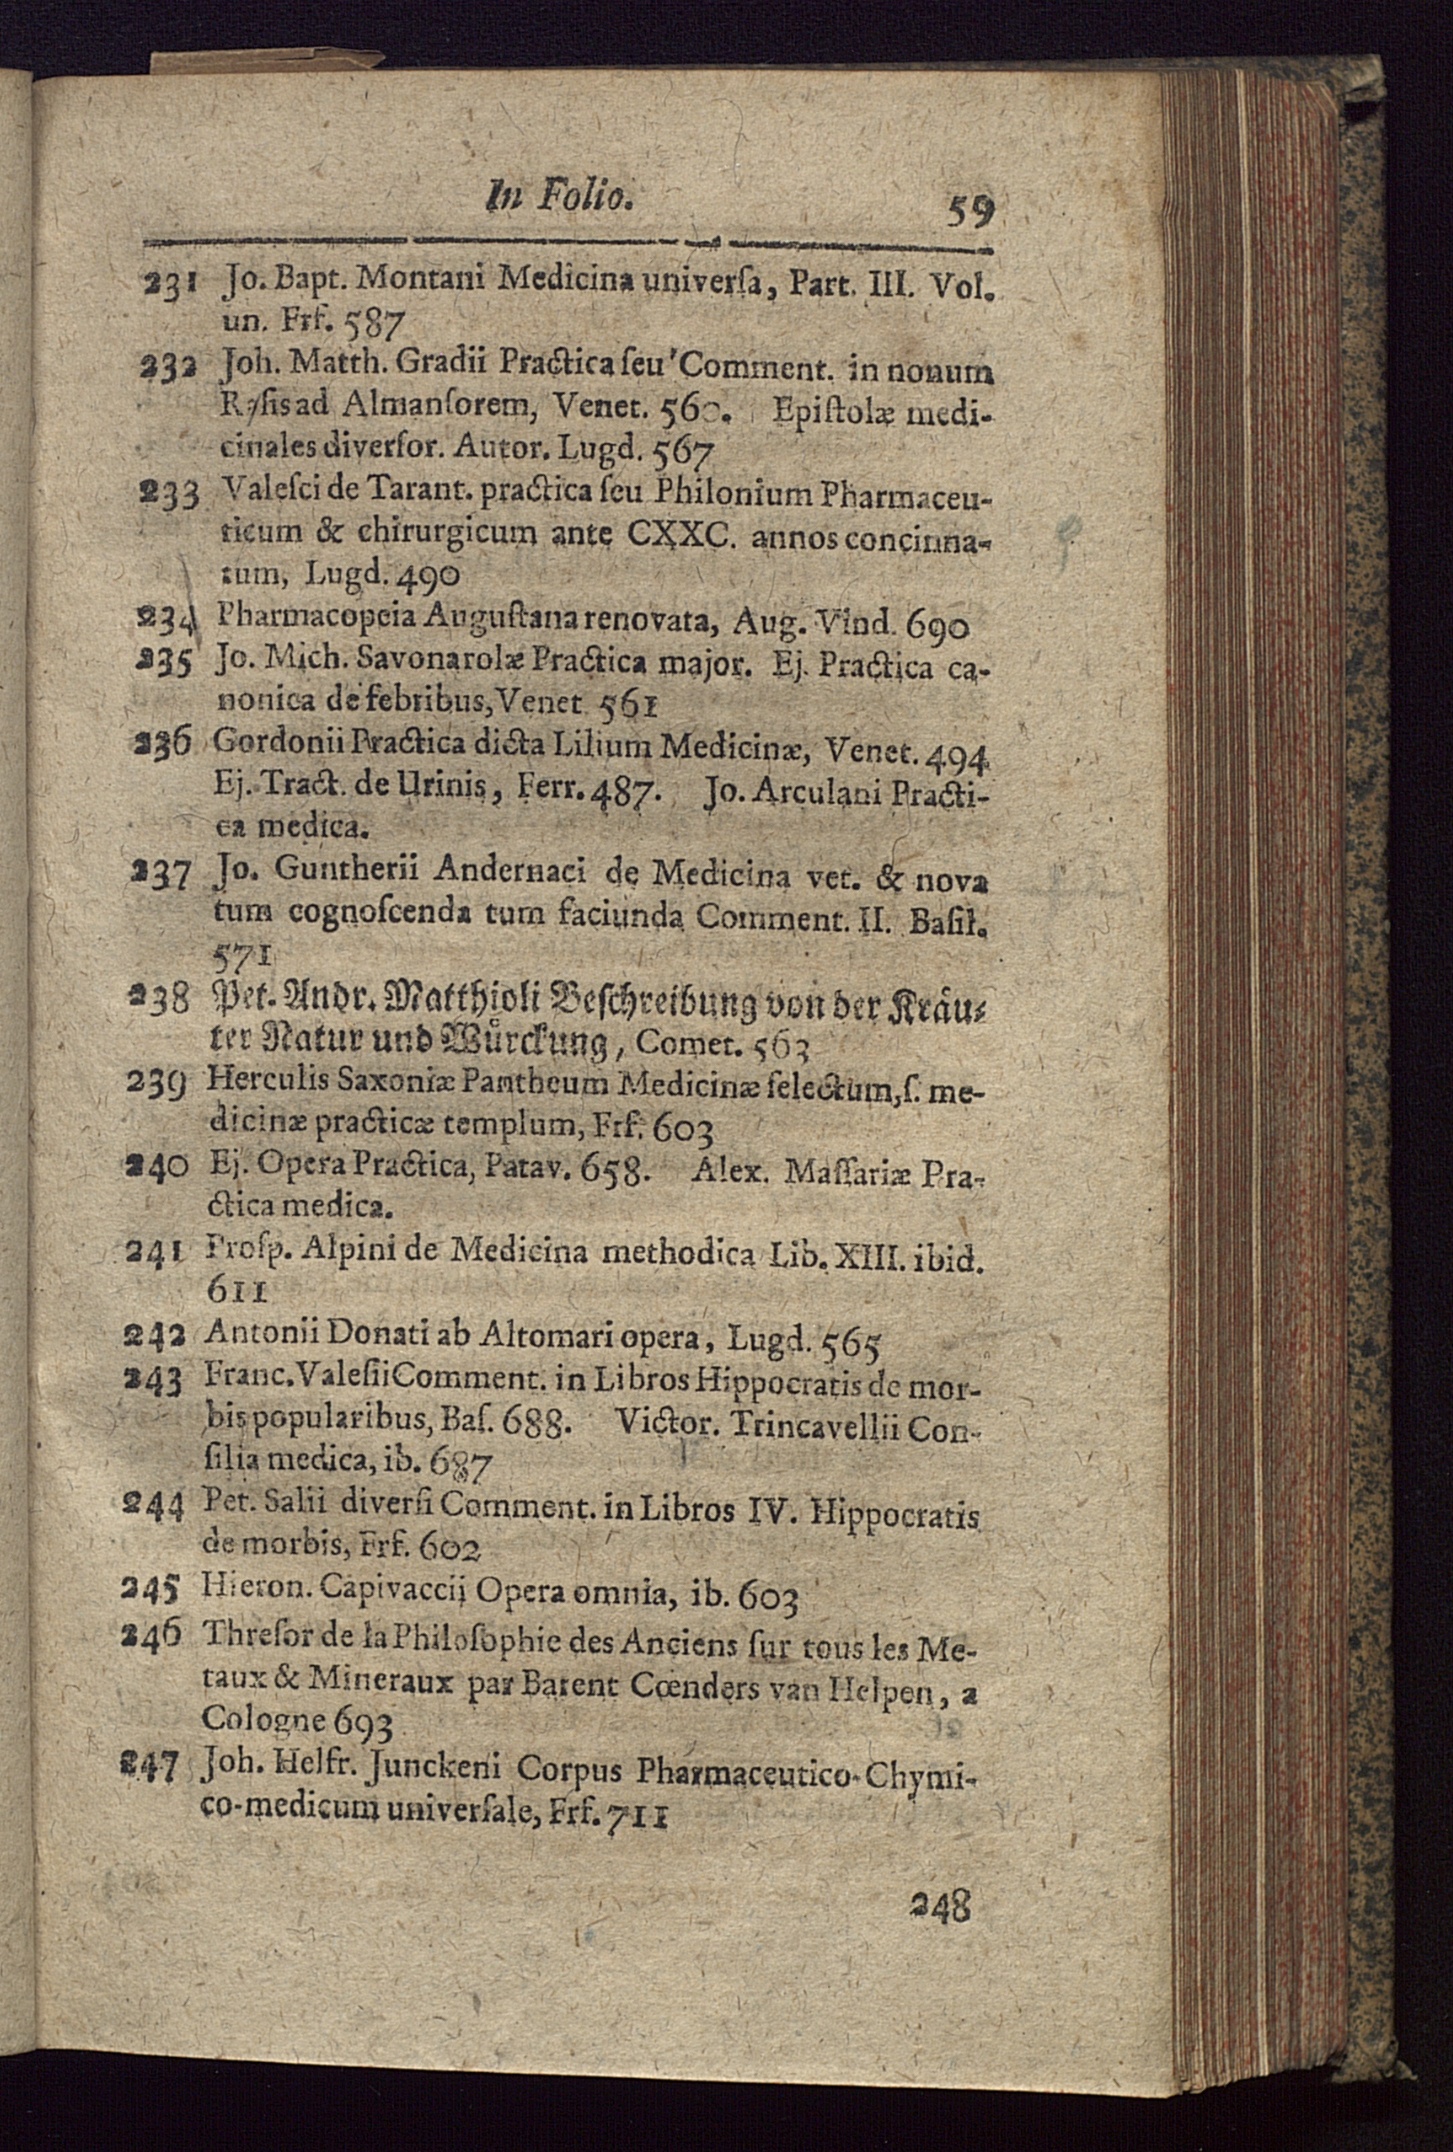 In Folio. 59
231 Jo. Bapt. Montani Medicina universa, Part. III. Vol.
un. Frf. 587
232 Joh. Matth. Gradii Practica seu Comment. in nonum
Rasis ad Almansorem, Venet. 560. Epistolæ medi-
cinales diversor. Autor. Lugd. 567
233 Valesci de Tarant. practica seu Philonium Pharmaceu-
ticum & chirurgicum ante CXXC. annos concinna-
tum, Lugd. 490
234 Pharmacopeia Augustana renovata, Aug. Vind. 690
235 Jo. Mich. Savonarolæ Practica major. Ej. Practica ca-
nonica de febribus, Venet 561
236 Gordonii Practica dicta Lilium Medicinæ, Venet. 494
Ej. Tract. de Urinis, Ferr. 487. Jo. Arculani Practi-
ca medica.
237 Jo. Guntherii Andernaci de Medicina vet. & nova
tum cognoscenda tum faciunda Comment. II. Basil.
571
238 Pet. Andr. Matthioli Beschreibung von der Kräu-
ter Natur und Würckung, Comet. 563
239 Herculis Saxoniæ Pantheum Medicinæ selectum, s. me-
dicinæ practicæ templum, Frf. 603
240 Ej. Opera Practica, Patav. 658. Alex. Massariæ Pra-
ctica medica.
241 Prosp. Alpini de Medicina methodica Lib. XIII. ibid.
611
242 Antonii Donati ab Altomari opera, Lugd. 565
243 Franc. Valesii Comment. in Libros Hippocratis de mor-
bis popularibus, Bas. 688. Victor. Trincavellii Con-
silia medica, ib. 687
244 Pet. Salii diversi Comment. in Libros IV. Hippocratis
de morbis, Frf. 602
245 Hieron. Capivaccii Opera omnia, ib. 603
246 Thresor de la Philosophie des Anciens sur tous les Me-
taux & Mineraux par Barent Cœnders van Helpen, a
Cologne 693
247 Joh. Helfr. Junckeni Corpus Pharmaceutico-Chymi-
co-medicum universale, Frf. 711
248